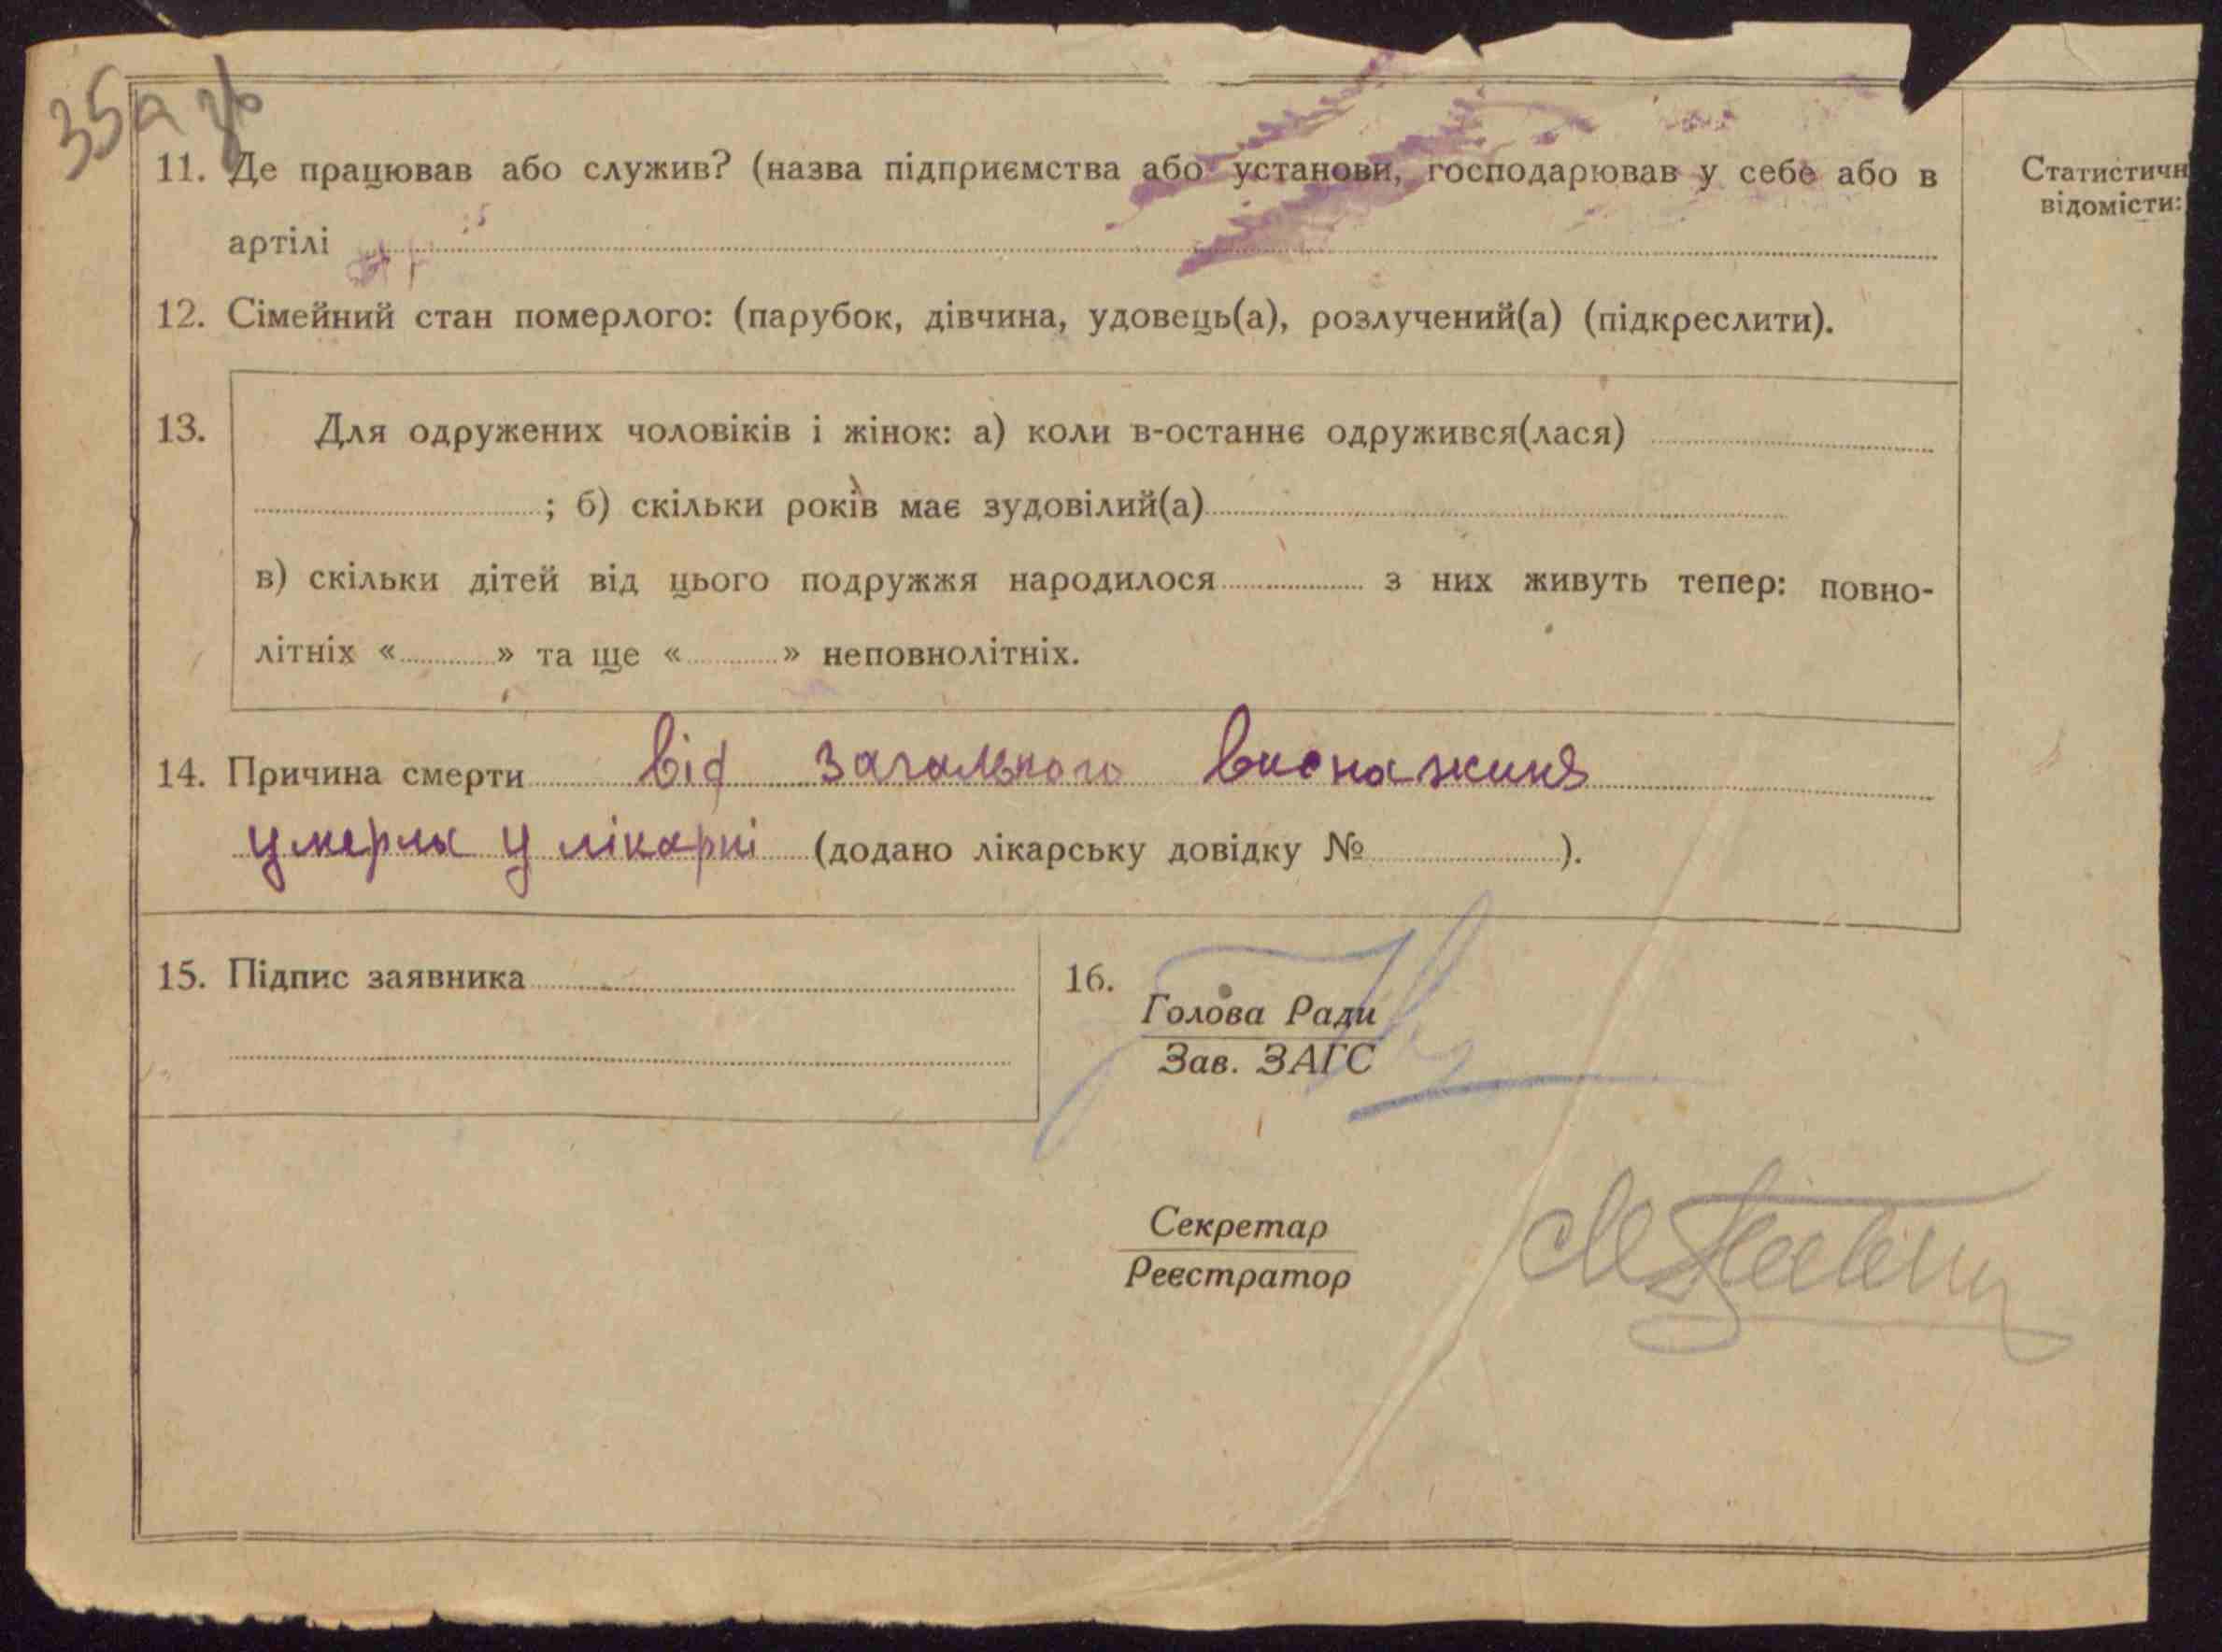 35а зв
11. Де працював або служив? (назва підприємства або установи, господарював у себе або в
Статистичн
відомісти:
артілі
12. Сімейний стан померлого: (парубок, дівчина, удовець(а), розлучений(а) (підкреслити).
13. Для одружених чоловіків і жінок: а) коли в-останнє одружився(лася)
; б) скільки років має зудовілий(а)
в) скільки дітей від цього подружжя народилося з них живуть тепер: повно-
літніх « » та ще « » неповнолітніх.
14. Причина смерти від загального виснажиня
умерла у лікарні (додано лікарську довідку № ).
15. Підпис заявника
16.
Голова Ради
Зав. ЗАГС
Секретар
Реєстратор